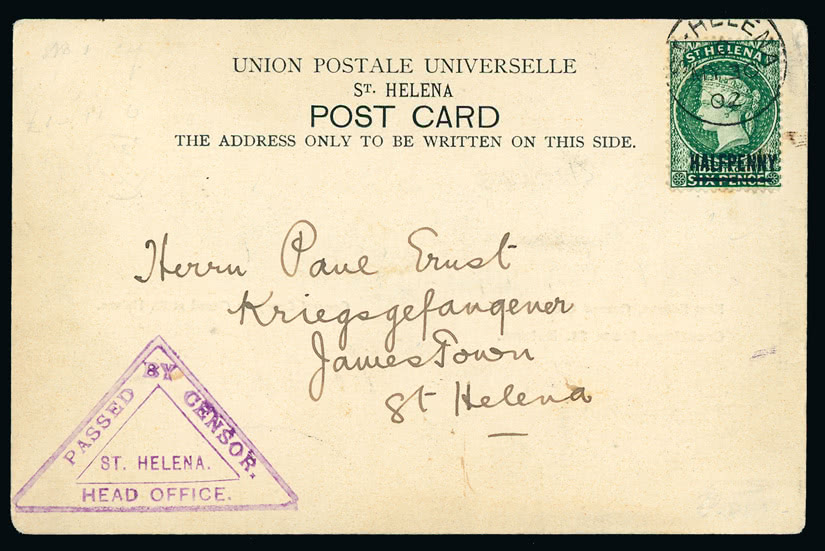 UNION POSTALE UNIVERSELLE
ST. HELENA
POST CARD
THE ADDRESS ONLY TO BE WRITTEN ON THIS SIDE.
HELENA
02
ST HELENA
HALFPENNY
SIX PENCE
Herrn Paul Ernst
Kriegsgefangener
JamesTown
St Helena
PASSED BY CENSOR.
ST. HELENA.
HEAD OFFICE.